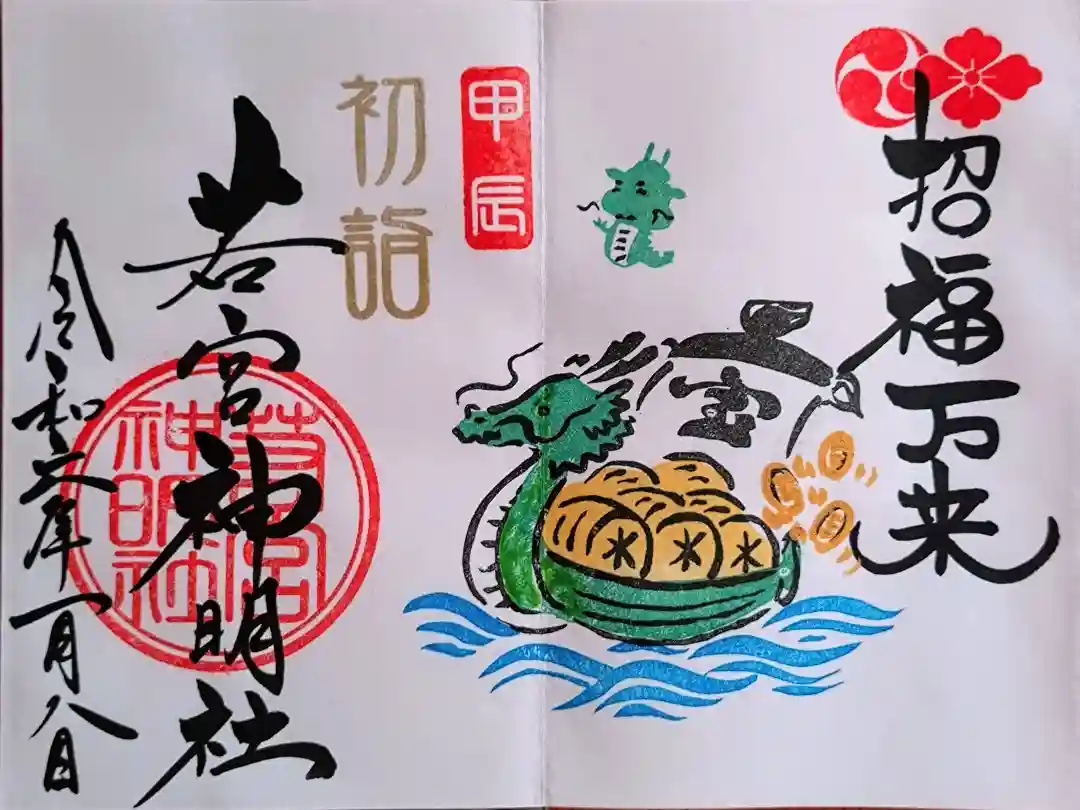 招福万来
宝
米 米 米
甲辰
初詣
若宮神明社
若宮
神明社
令和六年一月八日